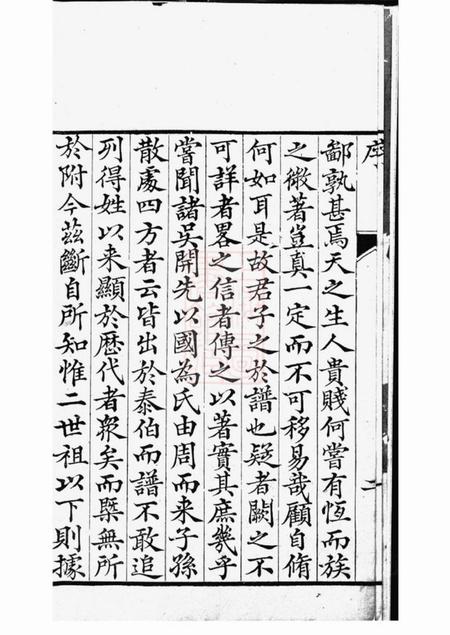 序
二
鄙孰甚焉天之生人貴賤何嘗有恆而族
之微著豈真一定而不可移易哉顧自脩
何如耳是故君子之於譜也疑者闕之不
可詳者畧之信者傳之以著實其庶幾乎
嘗聞諸吳開先以國為氏由周而来子孫
散處四方者云皆出於泰伯而譜不敢追
列得姓以来顯於歷代者衆矣而槩無所
於附今茲斷自所知惟二世祖以下則據